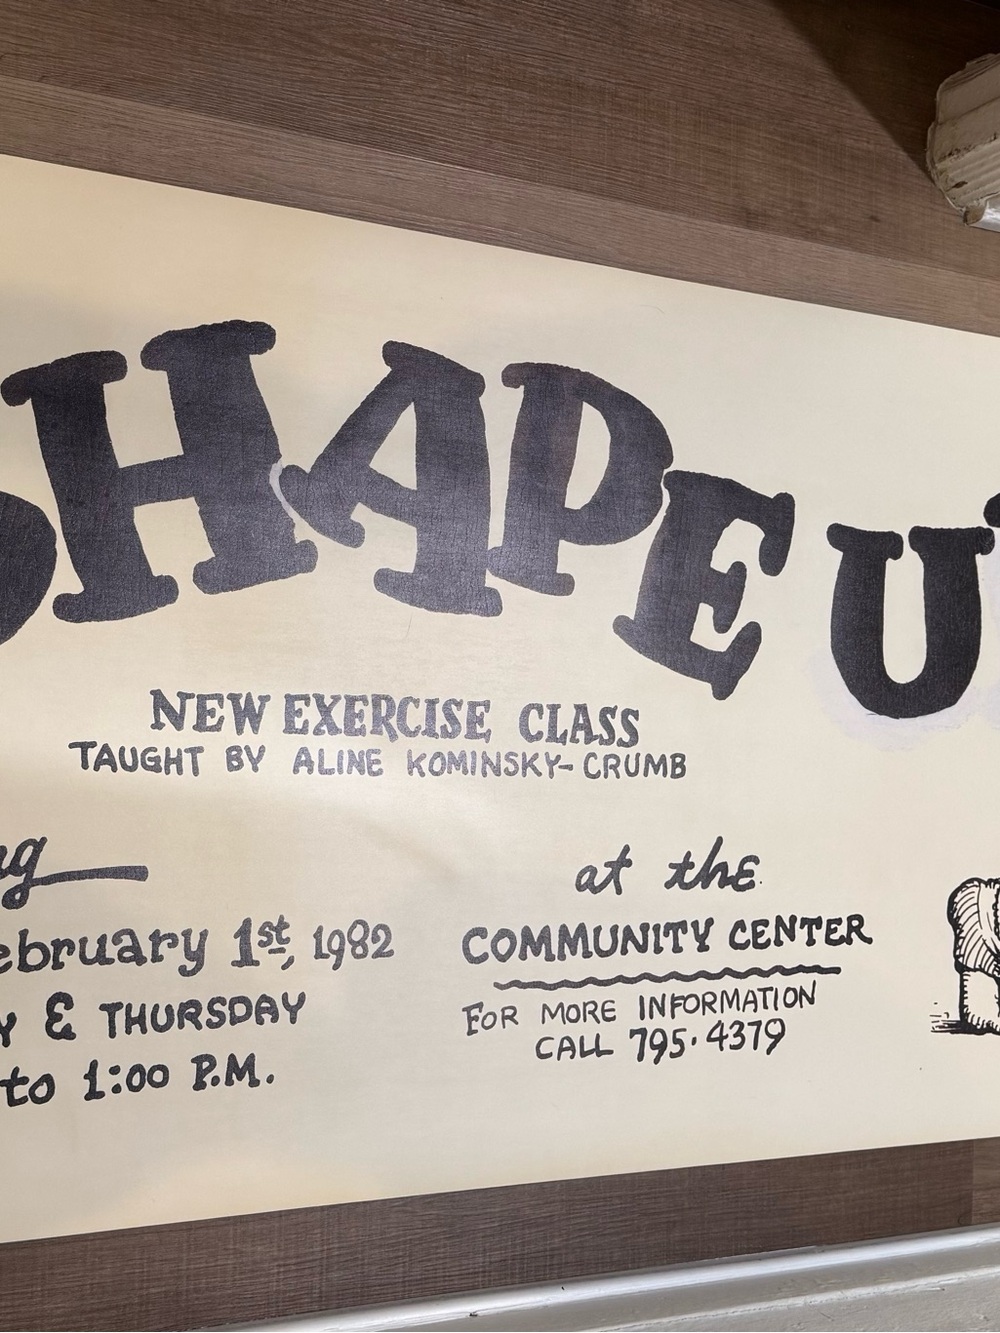 SHAPE U
NEW EXERCISE CLASS
TAUGHT BY ALINE KOMINSKY-CRUMB
ng
ebruary 1st, 1982
Y & THURSDAY
to 1:00 P.M.
at the
COMMUNITY CENTER
FOR MORE INFORMATION
CALL 795.4379